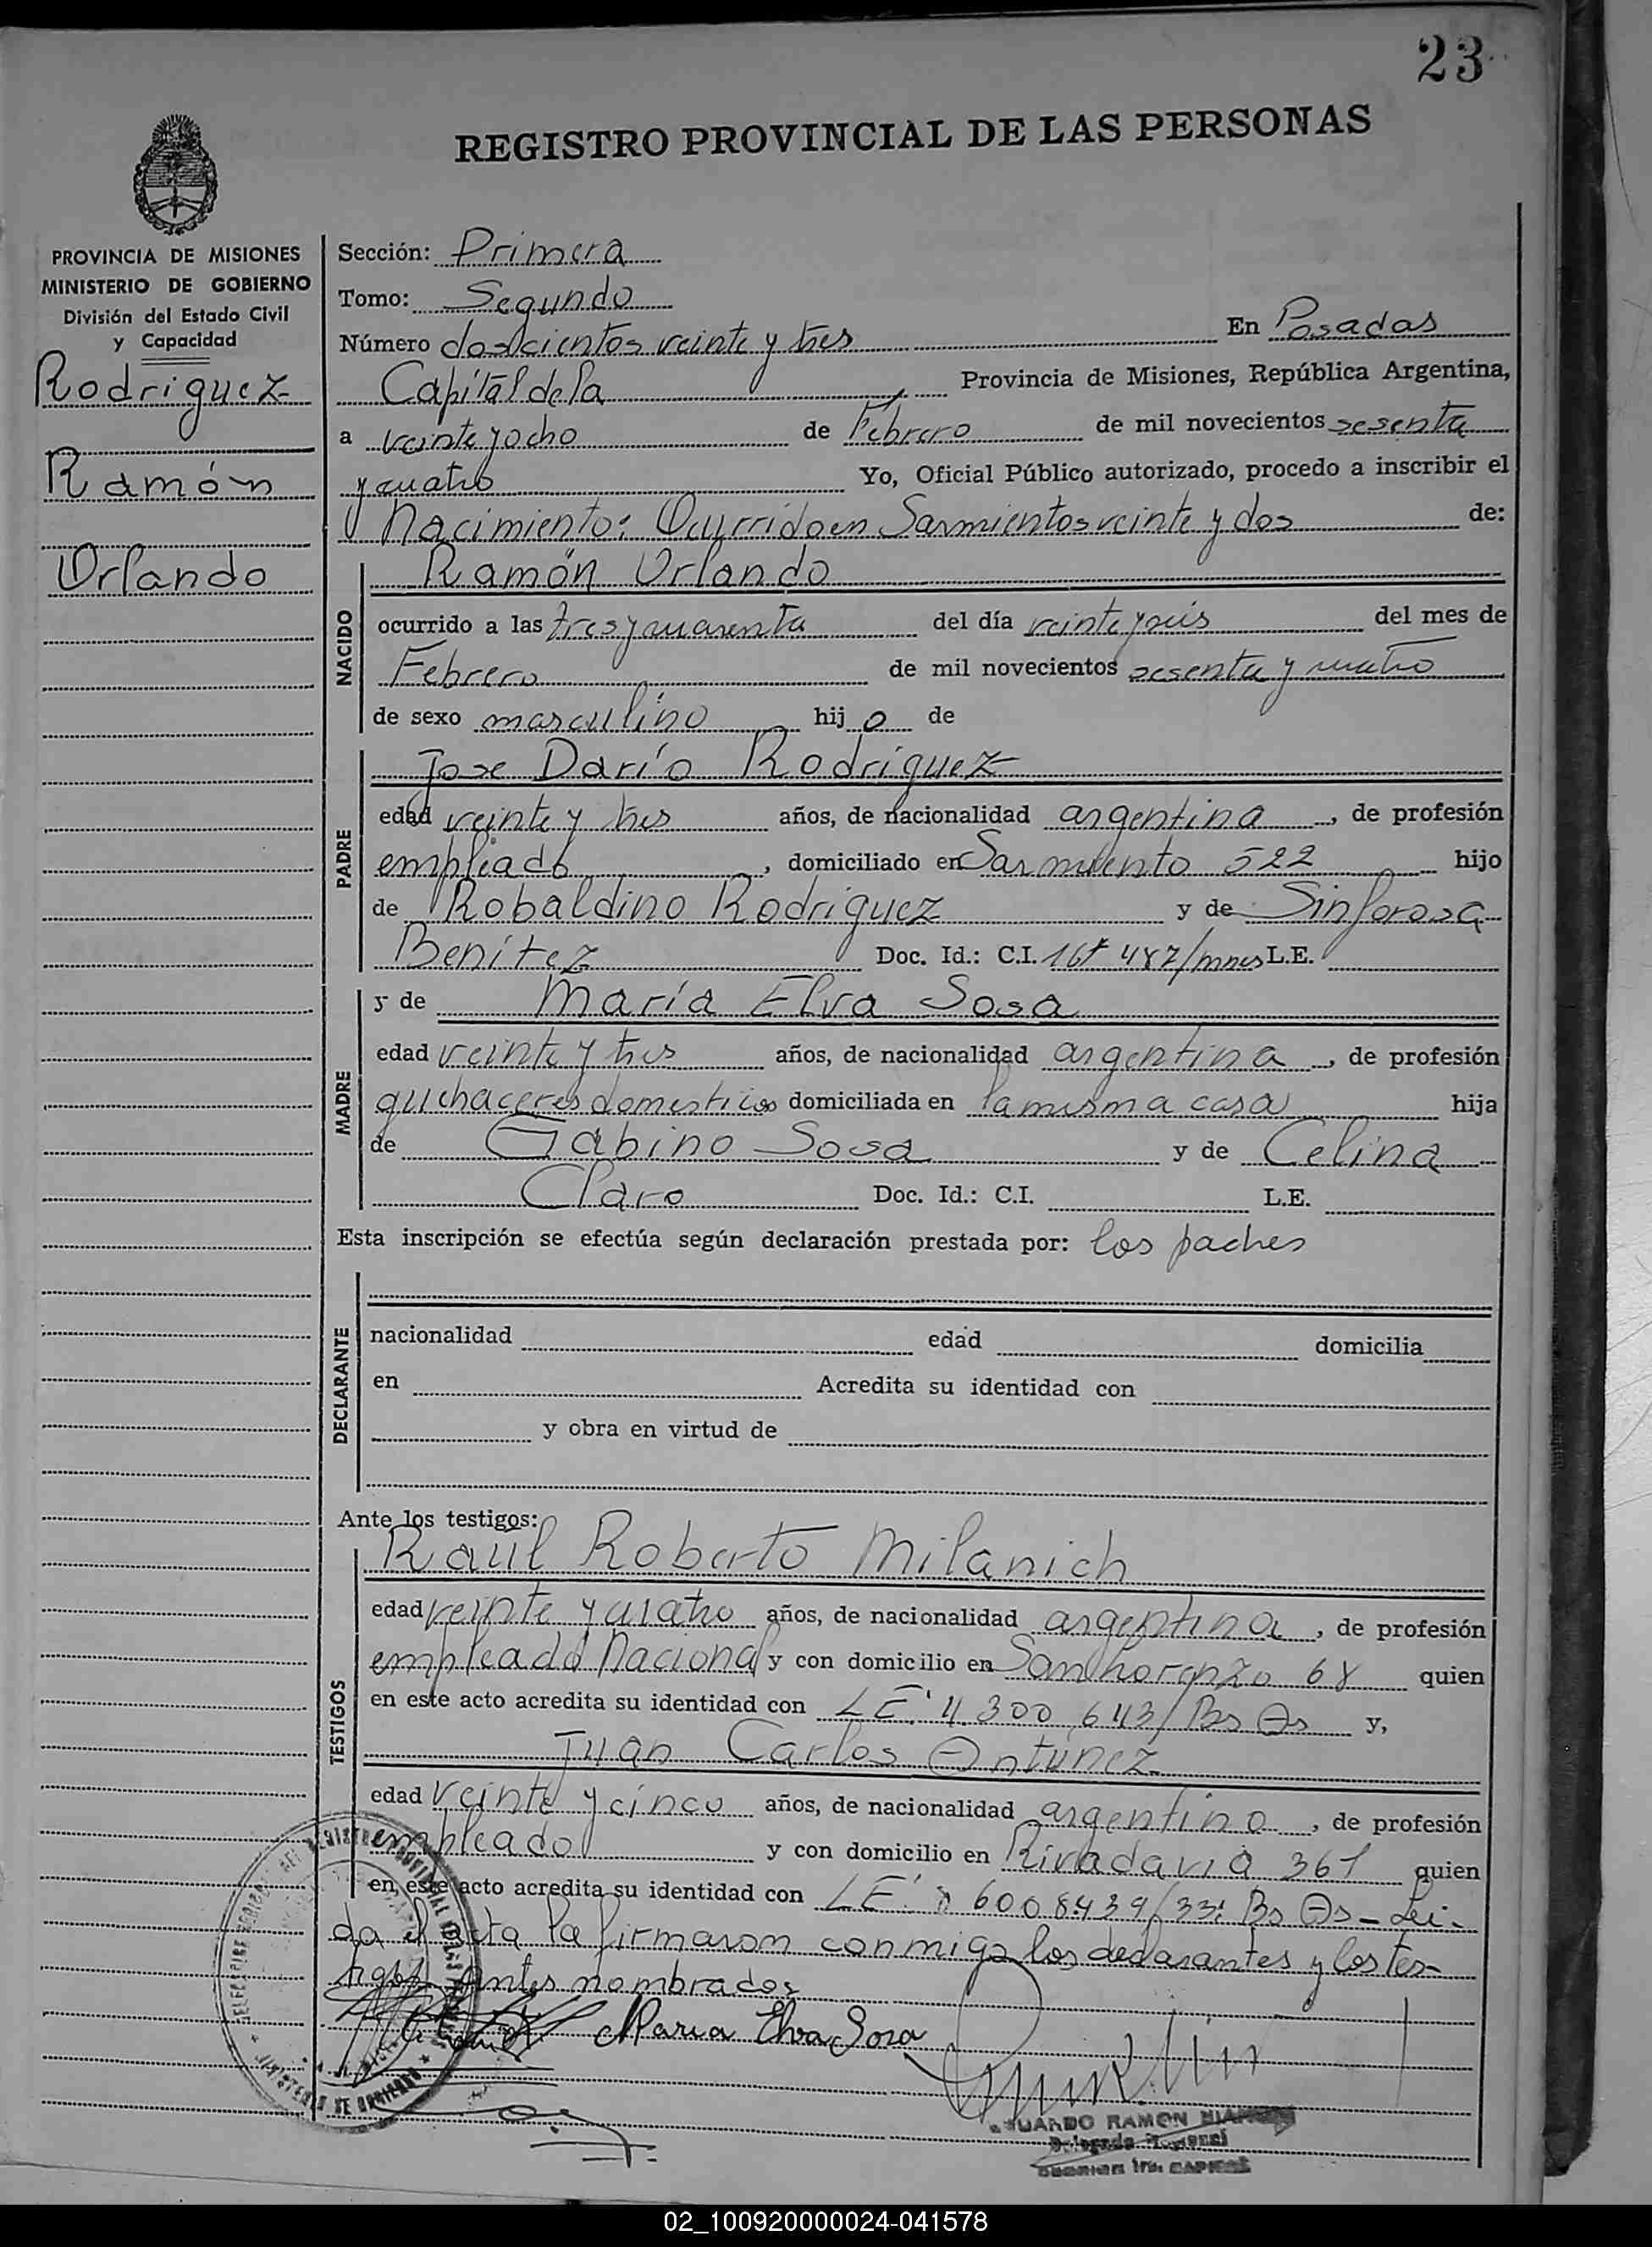 23
REGISTRO PROVINCIAL DE LAS PERSONAS
PROVINCIA DE MISIONES
MINISTERIO DE GOBIERNO
División del Estado Civil
y Capacidad
Rodriguez
Ramón
Orlando
Sección: Primera
Tomo: Segundo
Número doscientos veinte y tres En Posadas
Capital de la Provincia de Misiones, República Argentina,
a veinte y ocho de Febrero de mil novecientos sesenta
y cuatro Yo, Oficial Público autorizado, procedo a inscribir el
Nacimiento: Ocurrido en Sarmientos veinte y dos de:
NACIDO
Ramón Orlando
ocurrido a las tres y cuarenta del día veinte y seis del mes de
Febrero de mil novecientos sesenta y cuatro
de sexo masculino hijo de
PADRE
Jose Darío Rodriguez
edad veinte y tres años, de nacionalidad argentina, de profesión
empleado, domiciliado en Sarmiento 522 hijo
de Robaldino Rodriguez y de Sinforosa
Benitez Doc. Id.: C.I. 487/mnes L.E.
MADRE
y de María Elva Sosa
edad veinte y tres años, de nacionalidad argentina, de profesión
quehaceres domesticos domiciliada en la misma casa hija
de Gabino Sosa y de Celina
Claro Doc. Id.: C.I. L.E.
Esta inscripción se efectúa según declaración prestada por: los padres
DECLARANTE
nacionalidad edad domicilia
en Acredita su identidad con
y obra en virtud de
Ante los testigos:
TESTIGOS
Raúl Roberto Milanich
edad veinte y cuatro años, de nacionalidad argentina, de profesión
empleado Nacional y con domicilio en San Lorenzo 68 quien
en este acto acredita su identidad con LE. 4.300.643/Bs As y,
Juan Carlos Antúnez
edad veinte y cinco años, de nacionalidad argentino, de profesión
empleado y con domicilio en Rivadavia 361 quien
en este acto acredita su identidad con LE. 6008439/33: Bs As - Lei-
da el acta la firmaron conmigo los declarantes y los tes-
tigos antes nombrados
Maria Elva Sosa
RAMON
02_100920000024-041578